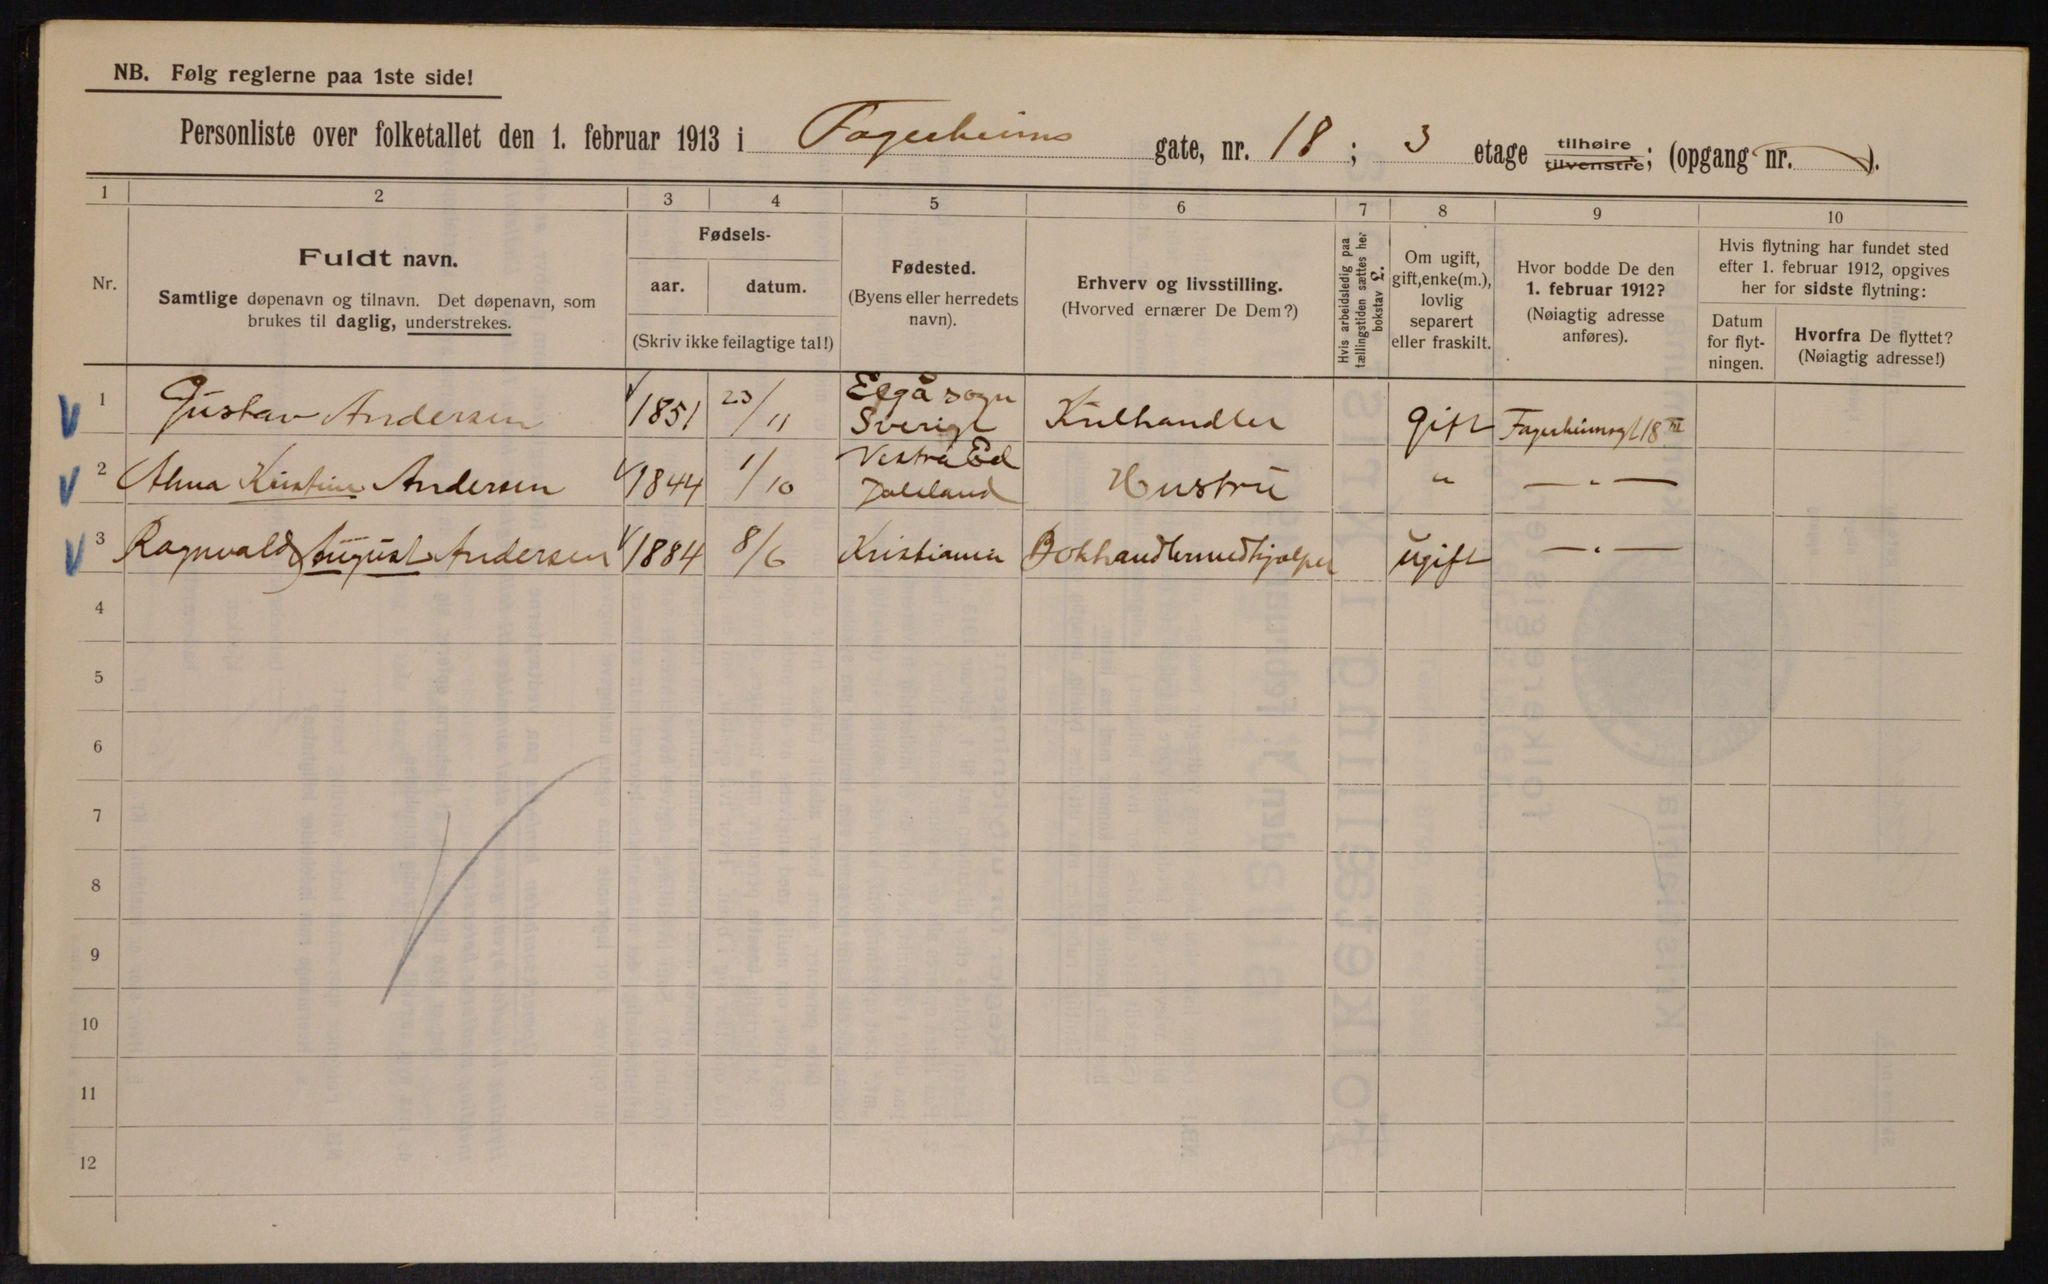 NB. Følg reglerne paa 1ste side!
Personliste over folketallet den 1. februar 1913 i Fagerheims gate, nr. 18; 3 etage tilhøire tilvenstre; (opgang nr. ).
1 2 3 4 5 6 7 8 9 10
Nr.
Fuldt navn.
Samtlige døpenavn og tilnavn. Det døpenavn, som
brukes til daglig, understrekes.
Fødsels-
aar.
datum.
(Skriv ikke feilagtige tal!)
Fødested.
(Byens eller herredets
navn).
Erhverv og livsstilling.
(Hvorved ernærer De Dem?)
Hvis arbeidsledig paa
tællingstiden sættes her
bokstav L.
Om ugift,
gift, enke(m.),
lovlig
separert
eller fraskilt.
Hvor bodde De den
1. februar 1912?
(Nøiagtig adresse
anføres).
Hvis flytning har fundet sted
efter 1. februar 1912, opgives
her for sidste flytning:
Datum
for flyt-
ningen.
Hvorfra De flyttet?
(Nøiagtig adresse!)
1 Gustav Andersen 1851 23/11 Elgå sogn Sverige Kulhandler gift Fagerheimsgt 18 III
2 Alma Kristine Andersen 1844 1/10 Vestra Ed Dalsland Hustru " — " —
3 Ragnvald August Andersen 1884 8/6 Kristiania Bokhandlermedhjælper ugift — " —
4
5
6
7
8
9
10
11
12